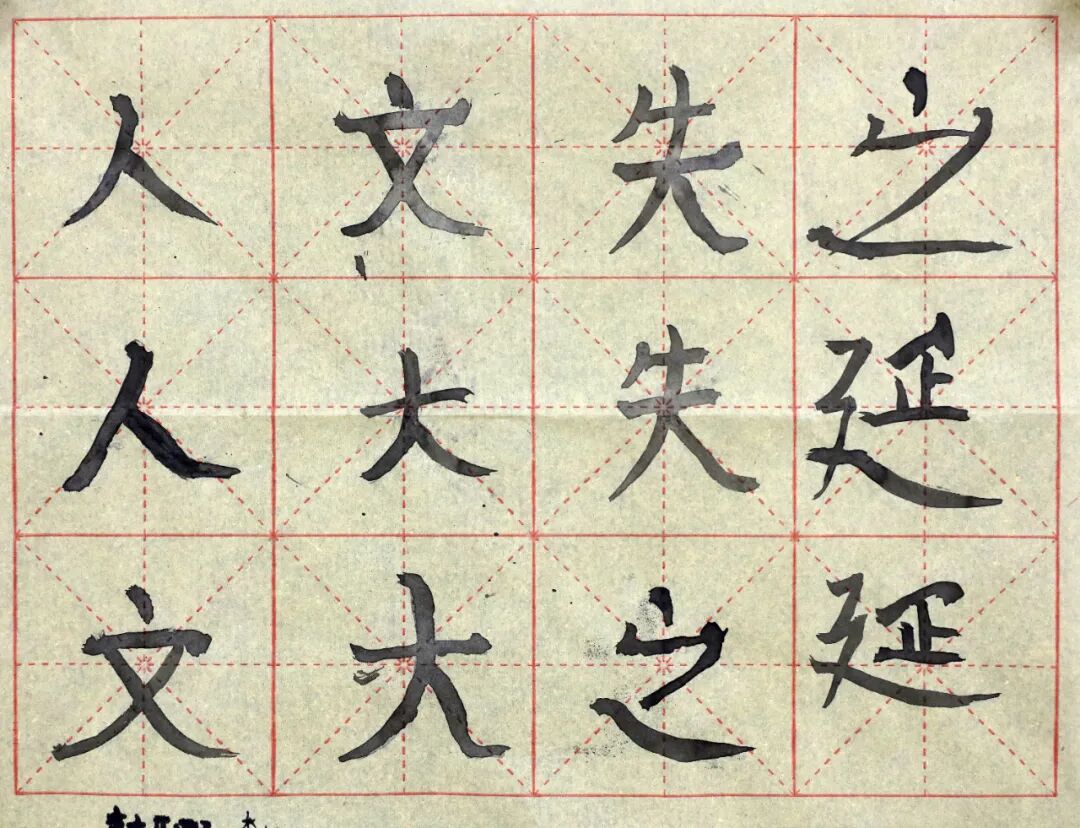 人人文
文大大
失失之
之延延